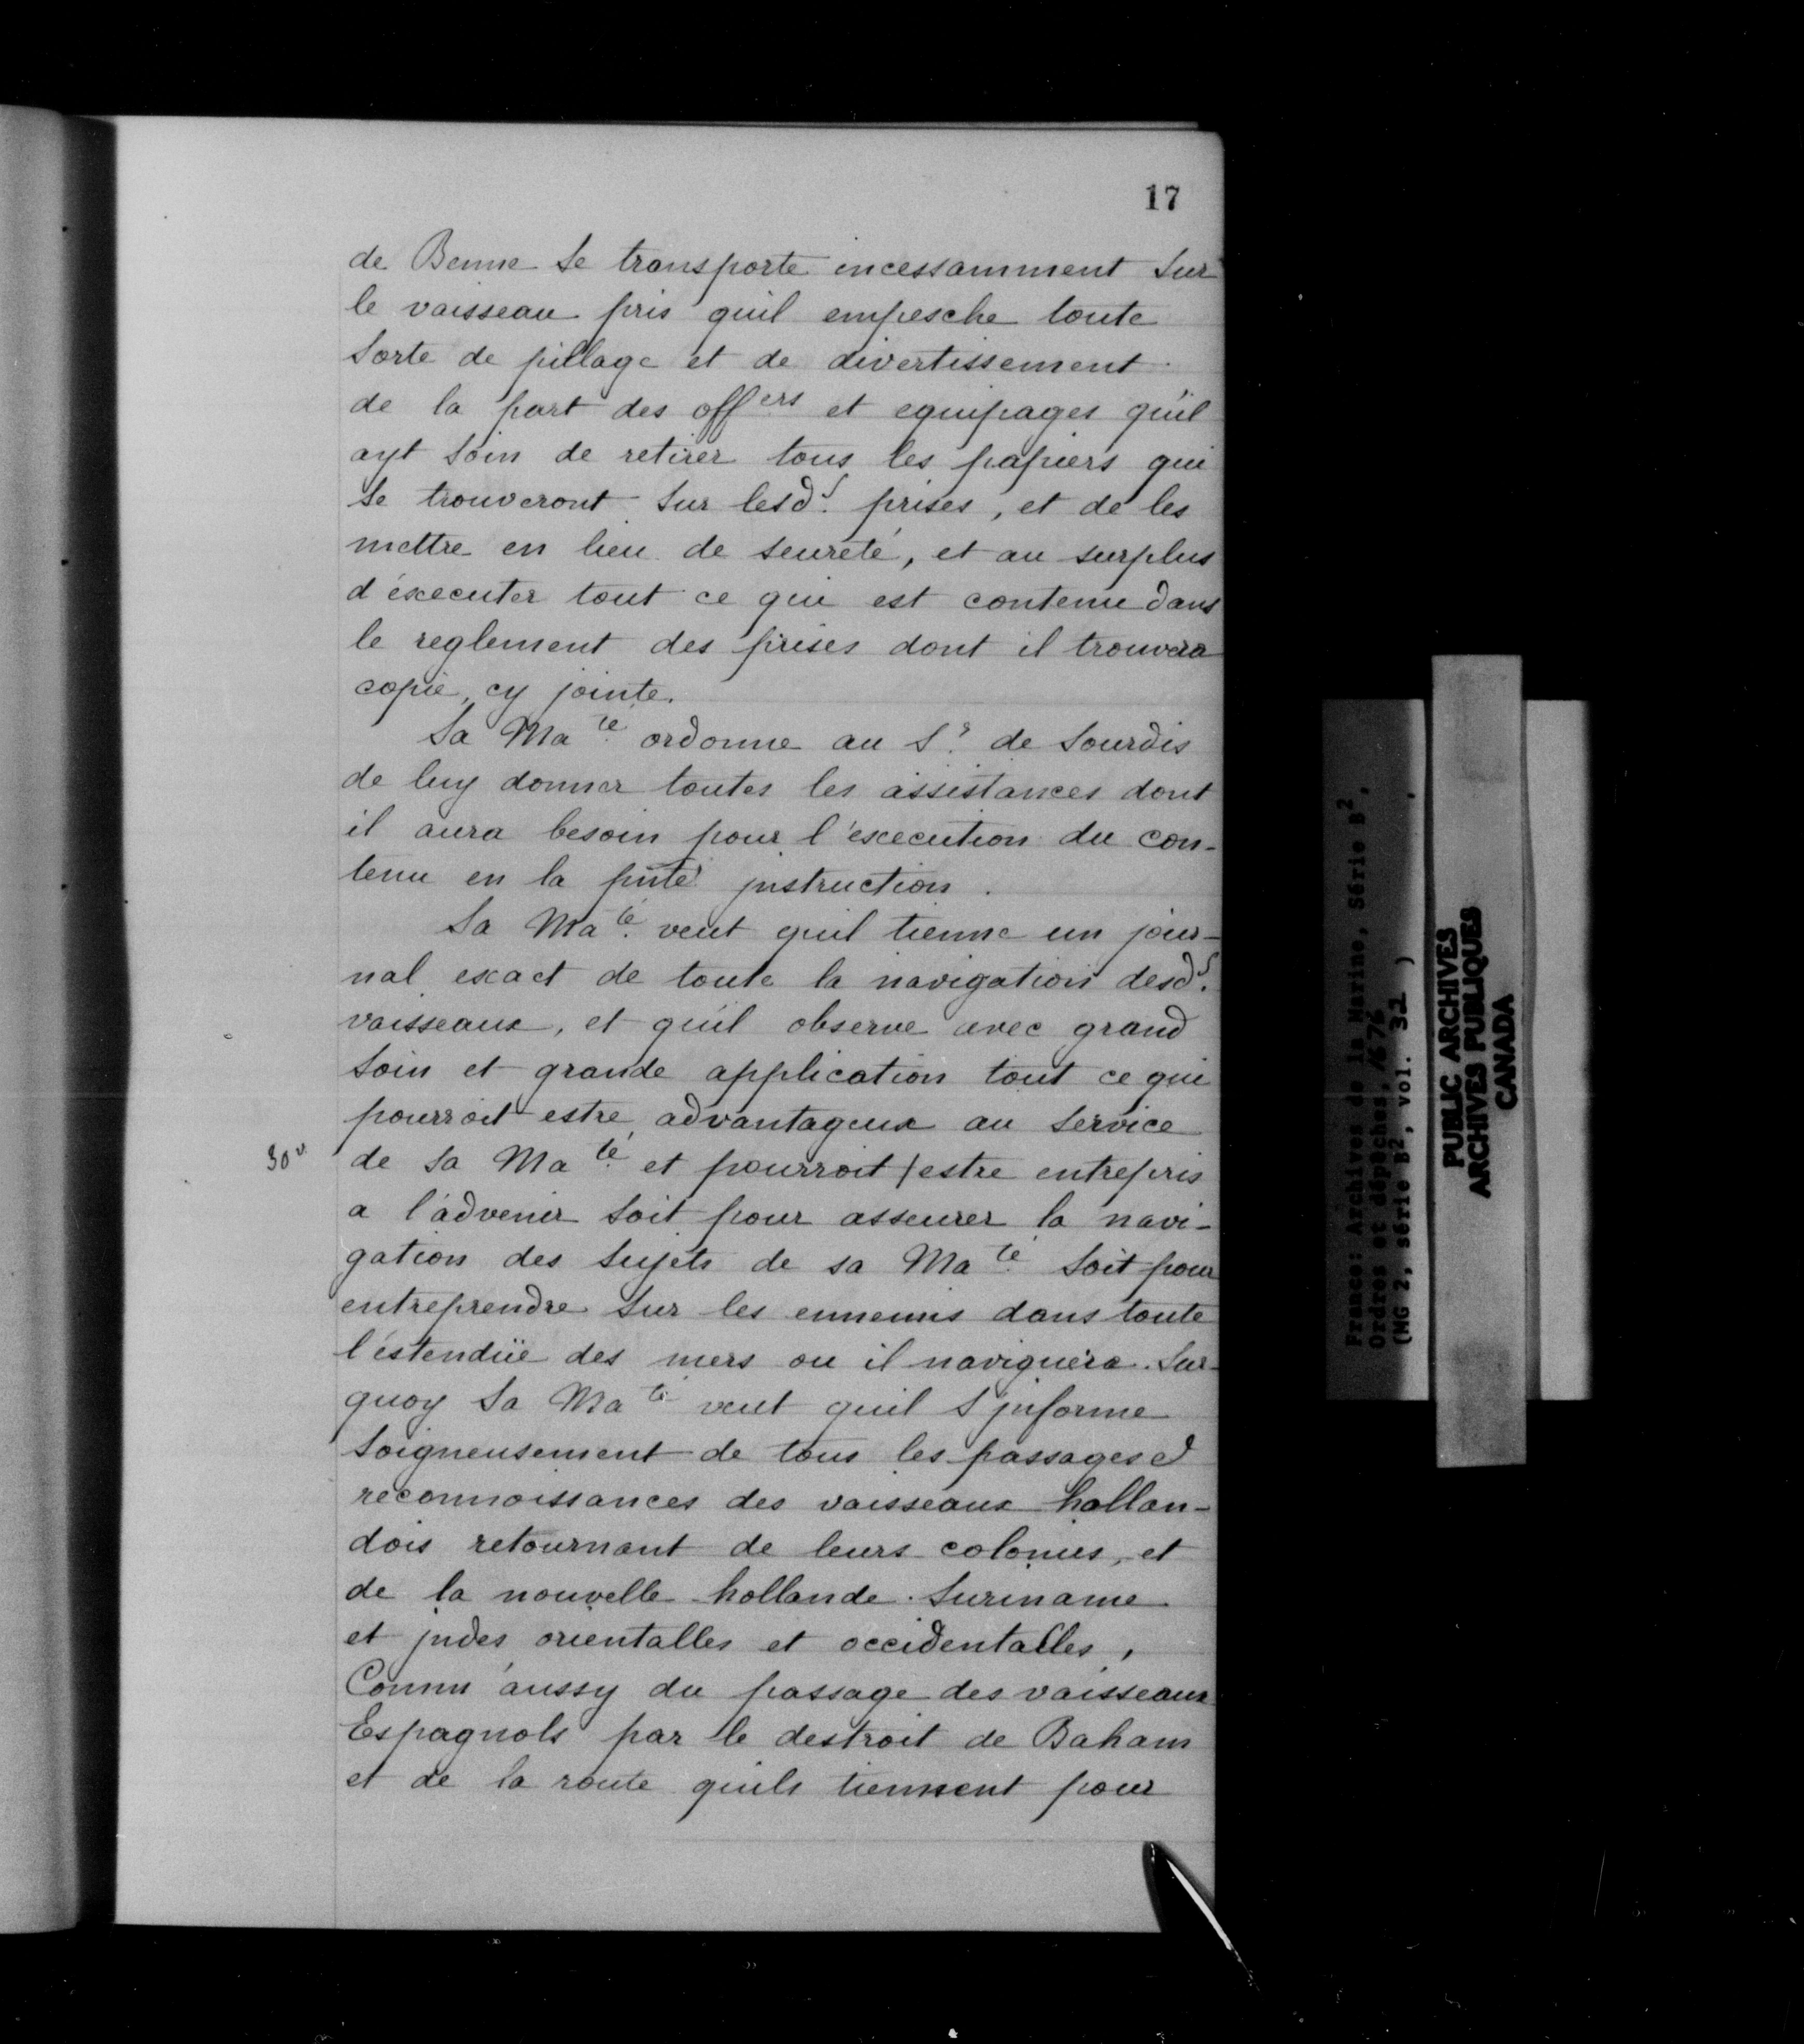 17
de Benne se transporte incessamment sur
le vaisseau pris quil empesche toute
sorte de pillage et de divertissement
de la part des offers et equipages qu'il
ayt soin de retirer tous les papiers qui
se trouveront sur lesds. prises, et de les
mettre en lieu de seureté, et au surplus
d'éxecuter tout ce qui est contenu dans
le reglement des prises dont il trouvera
copie cy jointe.
Sa Maté ordonne au Sr. de Sourdis
de luy donner toutes les assistances dont
il aura besoin pour l'execution du con-
tenu en la pnte jnstruction.
Sa Maté veut quil tienne un jour-
nal exact de toute la navigation desds.
vaisseaux, et qu'il observe avec grand
soin et grande application tout ce qui
pourroit estre advantageux au service
30v. de sa Maté et pourroit / estre entrepris
a l'advenir soit pour asseurer la navi-
gation des sujets de sa Maté soit pour
entreprendre sur les ennemis dans toute
l'éstendüe des mers ou il naviguera. Sur
quoy sa Maté veut quil s'jnforme
soigneusement de tous les passages et
reconnoissances des vaisseaux hollan-
dois retournant de leurs colonies, et
de la nouvelle hollande. Suriname
et jndes orientalles et occidentalles,
Comm' aussy du passage des vaisseaux
Espagnols par le destroit de Baham
et de la route quils tiennent pour
France: Archives de la Marine, Série B2,
Ordres et dépêches, 1676
(MG 2, série B2, vol. 32 )
PUBLIC ARCHIVES
ARCHIVES PUBLIQUES
CANADA